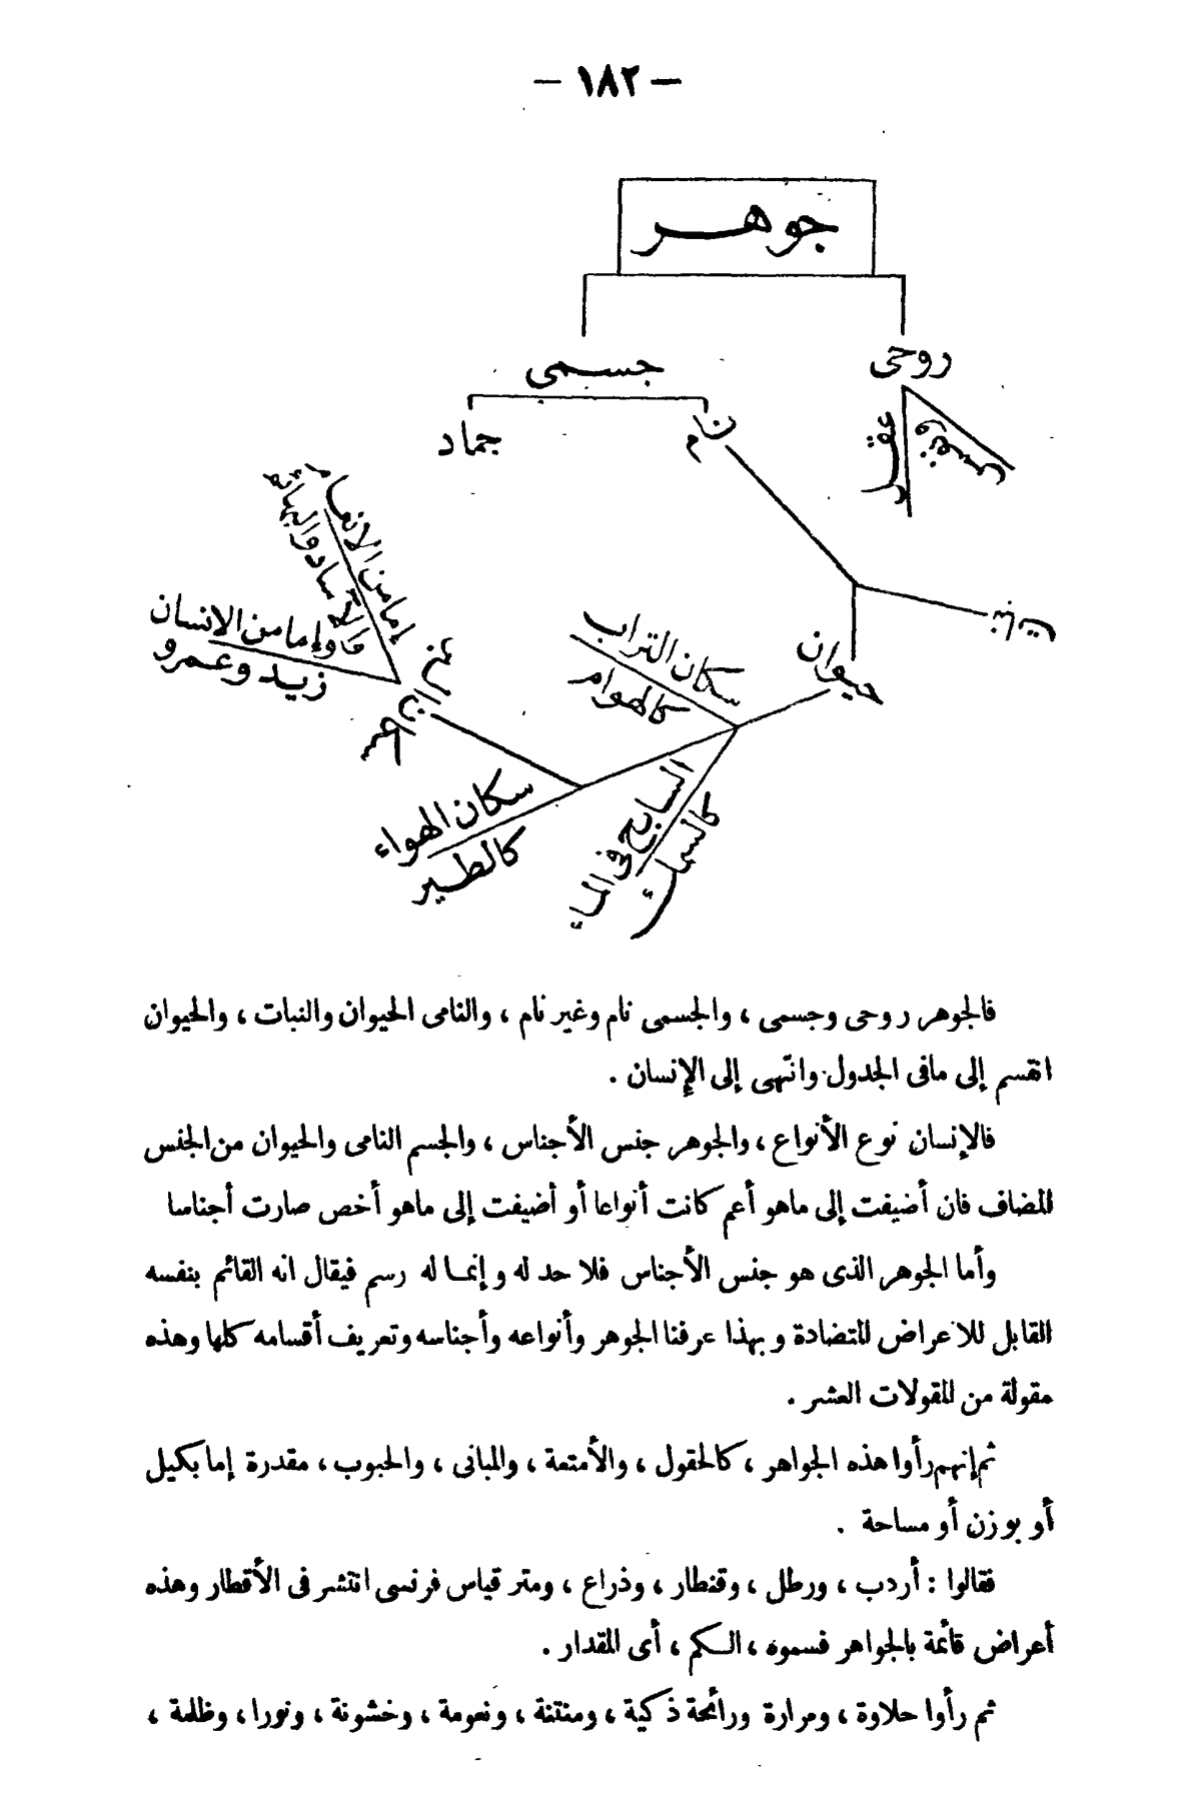 — ١٨٢ —
جوهر
روحى
جسمى
عقل
ونفس
نام
جماد
نبات
حيوان
سكان التراب
كالهوام
السابح فى الماء
كالسمك
سكان الهواء
كالطير
إما من الانعام
والبهائم
وإما من الانسان
زيد وعمرو
فالجوهر روحى وجسمى ، والجسمى نام وغير نام ، والنامى الحيوان والنبات ، والحيوان
انقسم إلى مافى الجدول وانتهى إلى الإنسان .
فالإنسان نوع الأنواع ، والجوهر جنس الأجناس ، والجسم النامى والحيوان من الجنس
المضاف فان أضيفت إلى ماهو أعم كانت أنواعا أو أضيفت إلى ماهو أخص صارت أجناسا
وأما الجوهر الذى هو جنس الأجناس فلا حد له وإنما له رسم فيقال انه القائم بنفسه
القابل للاعراض المتضادة وبهذا عرفنا الجوهر وأنواعه وأجناسه وتعريف أقسامه كلها وهذه
مقولة من المقولات العشر .
ثم إنهم رأوا هذه الجواهر ، كالحقول ، والأمتعة ، والمبانى ، والحبوب ، مقدرة إما بكيل
أو بوزن أو مساحة .
فقالوا : أردب ، ورطل ، وقنطار ، وذراع ، ومتر قياس فرنسى انتشر فى الأقطار وهذه
أعراض قائمة بالجواهر فسموه ، الكم ، أى المقدار .
ثم رأوا حلاوة ، ومرارة ورائحة ذكية ، ومنتنة ، ونعومة ، وخشونة ، ونورا ، وظلمة ،